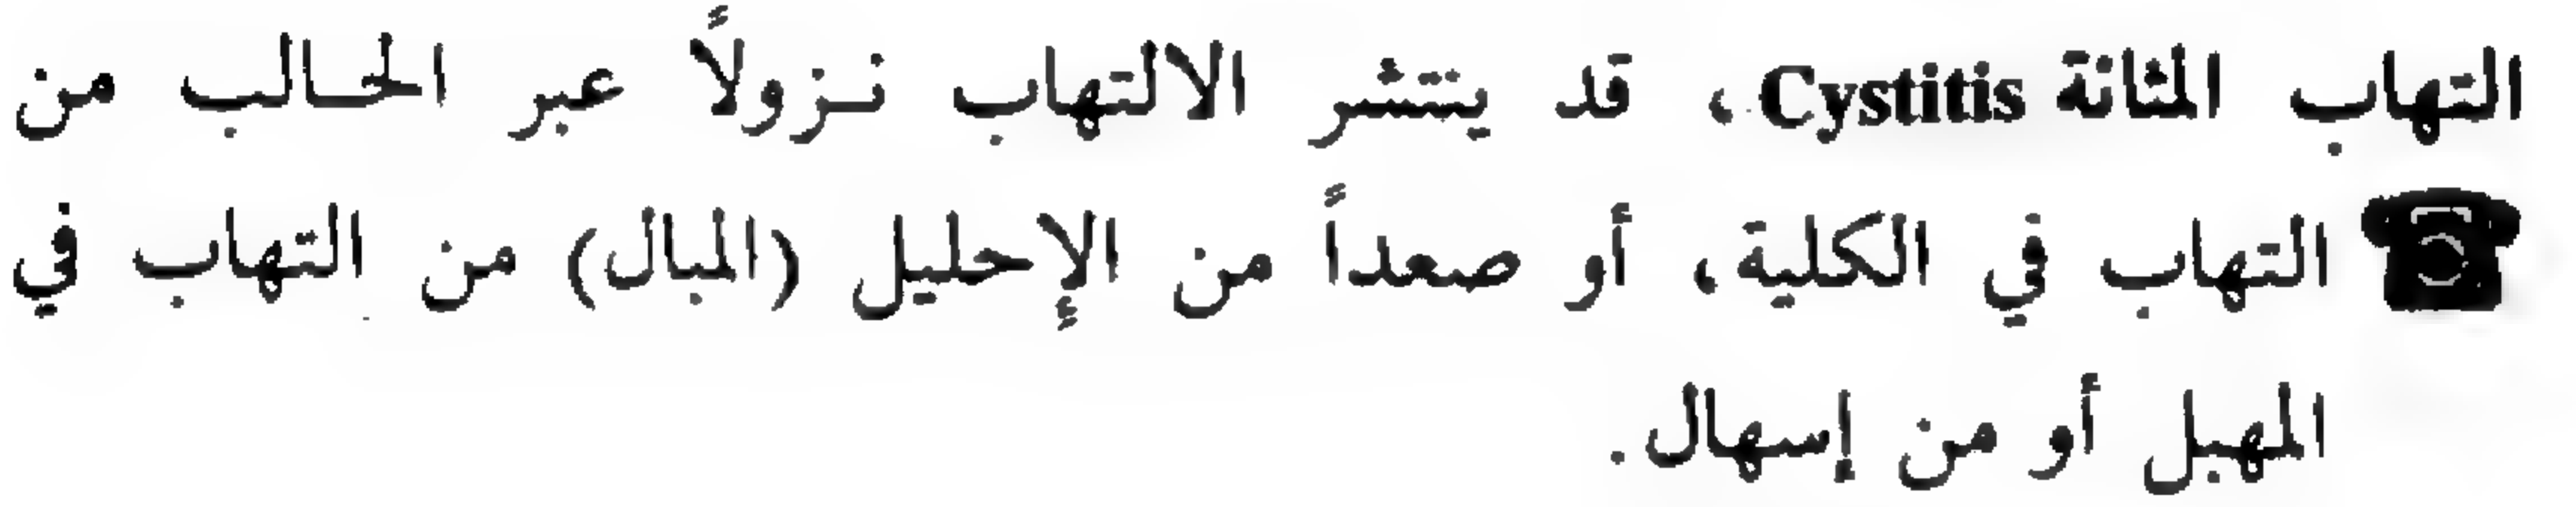 التهاب المثانة Cystitis، قد ينتشر الالتهاب نـزولاً عبر الحـالب من
التهاب في الكلية، أو صعداً من الإحليل (المبال) من التهاب في
المهبل أو من إسهال.